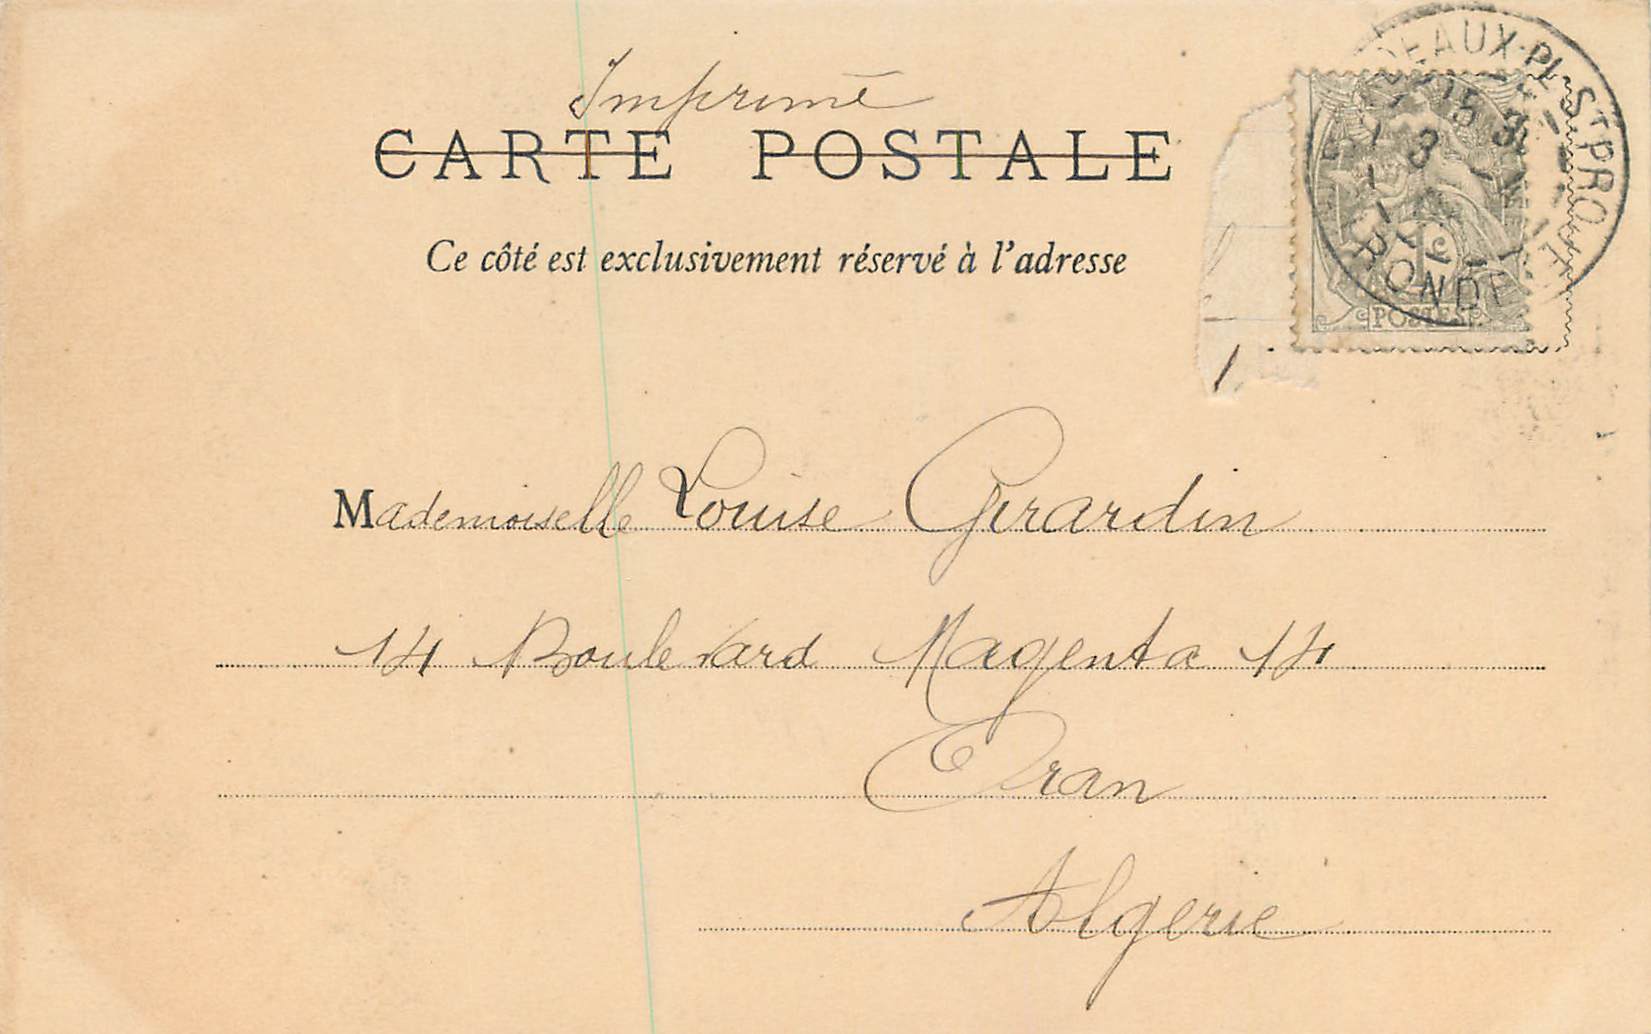 Imprimé
CARTE POSTALE
Ce côté est exclusivement réservé à l'adresse
DEAUX-PL ST PRO
15
3
RONDE
1c
POSTES
Mademoiselle Louise Girardin
14 Boulevard Magenta 14
Oran
Algerie